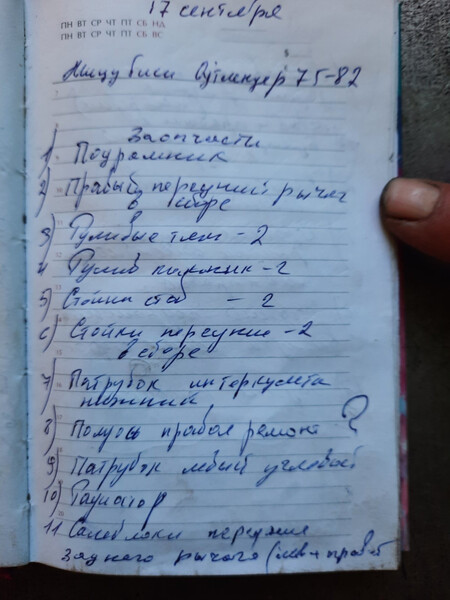 17 сентября
ПН ВТ СР ЧТ ПТ СБ НД
ПН ВТ СР ЧТ ПТ СБ ВС
Мицубиси Оутлендер 75-82
Запчасти
1) Подрамник
2) Правый передний рычаг
в сборе
3) Рулевые тяги - 2
4 Рулев наконник - 2
5) Стойки стаб - 2
6) Стойки передние - 2
в сборе
7) Патрубок интеркулера
нижний
8) Полуось правая ремонт ?
9) Патрубок левый угловой
10) Радиатор
11 Салеблоки передния
заднего рычага (лев + прав